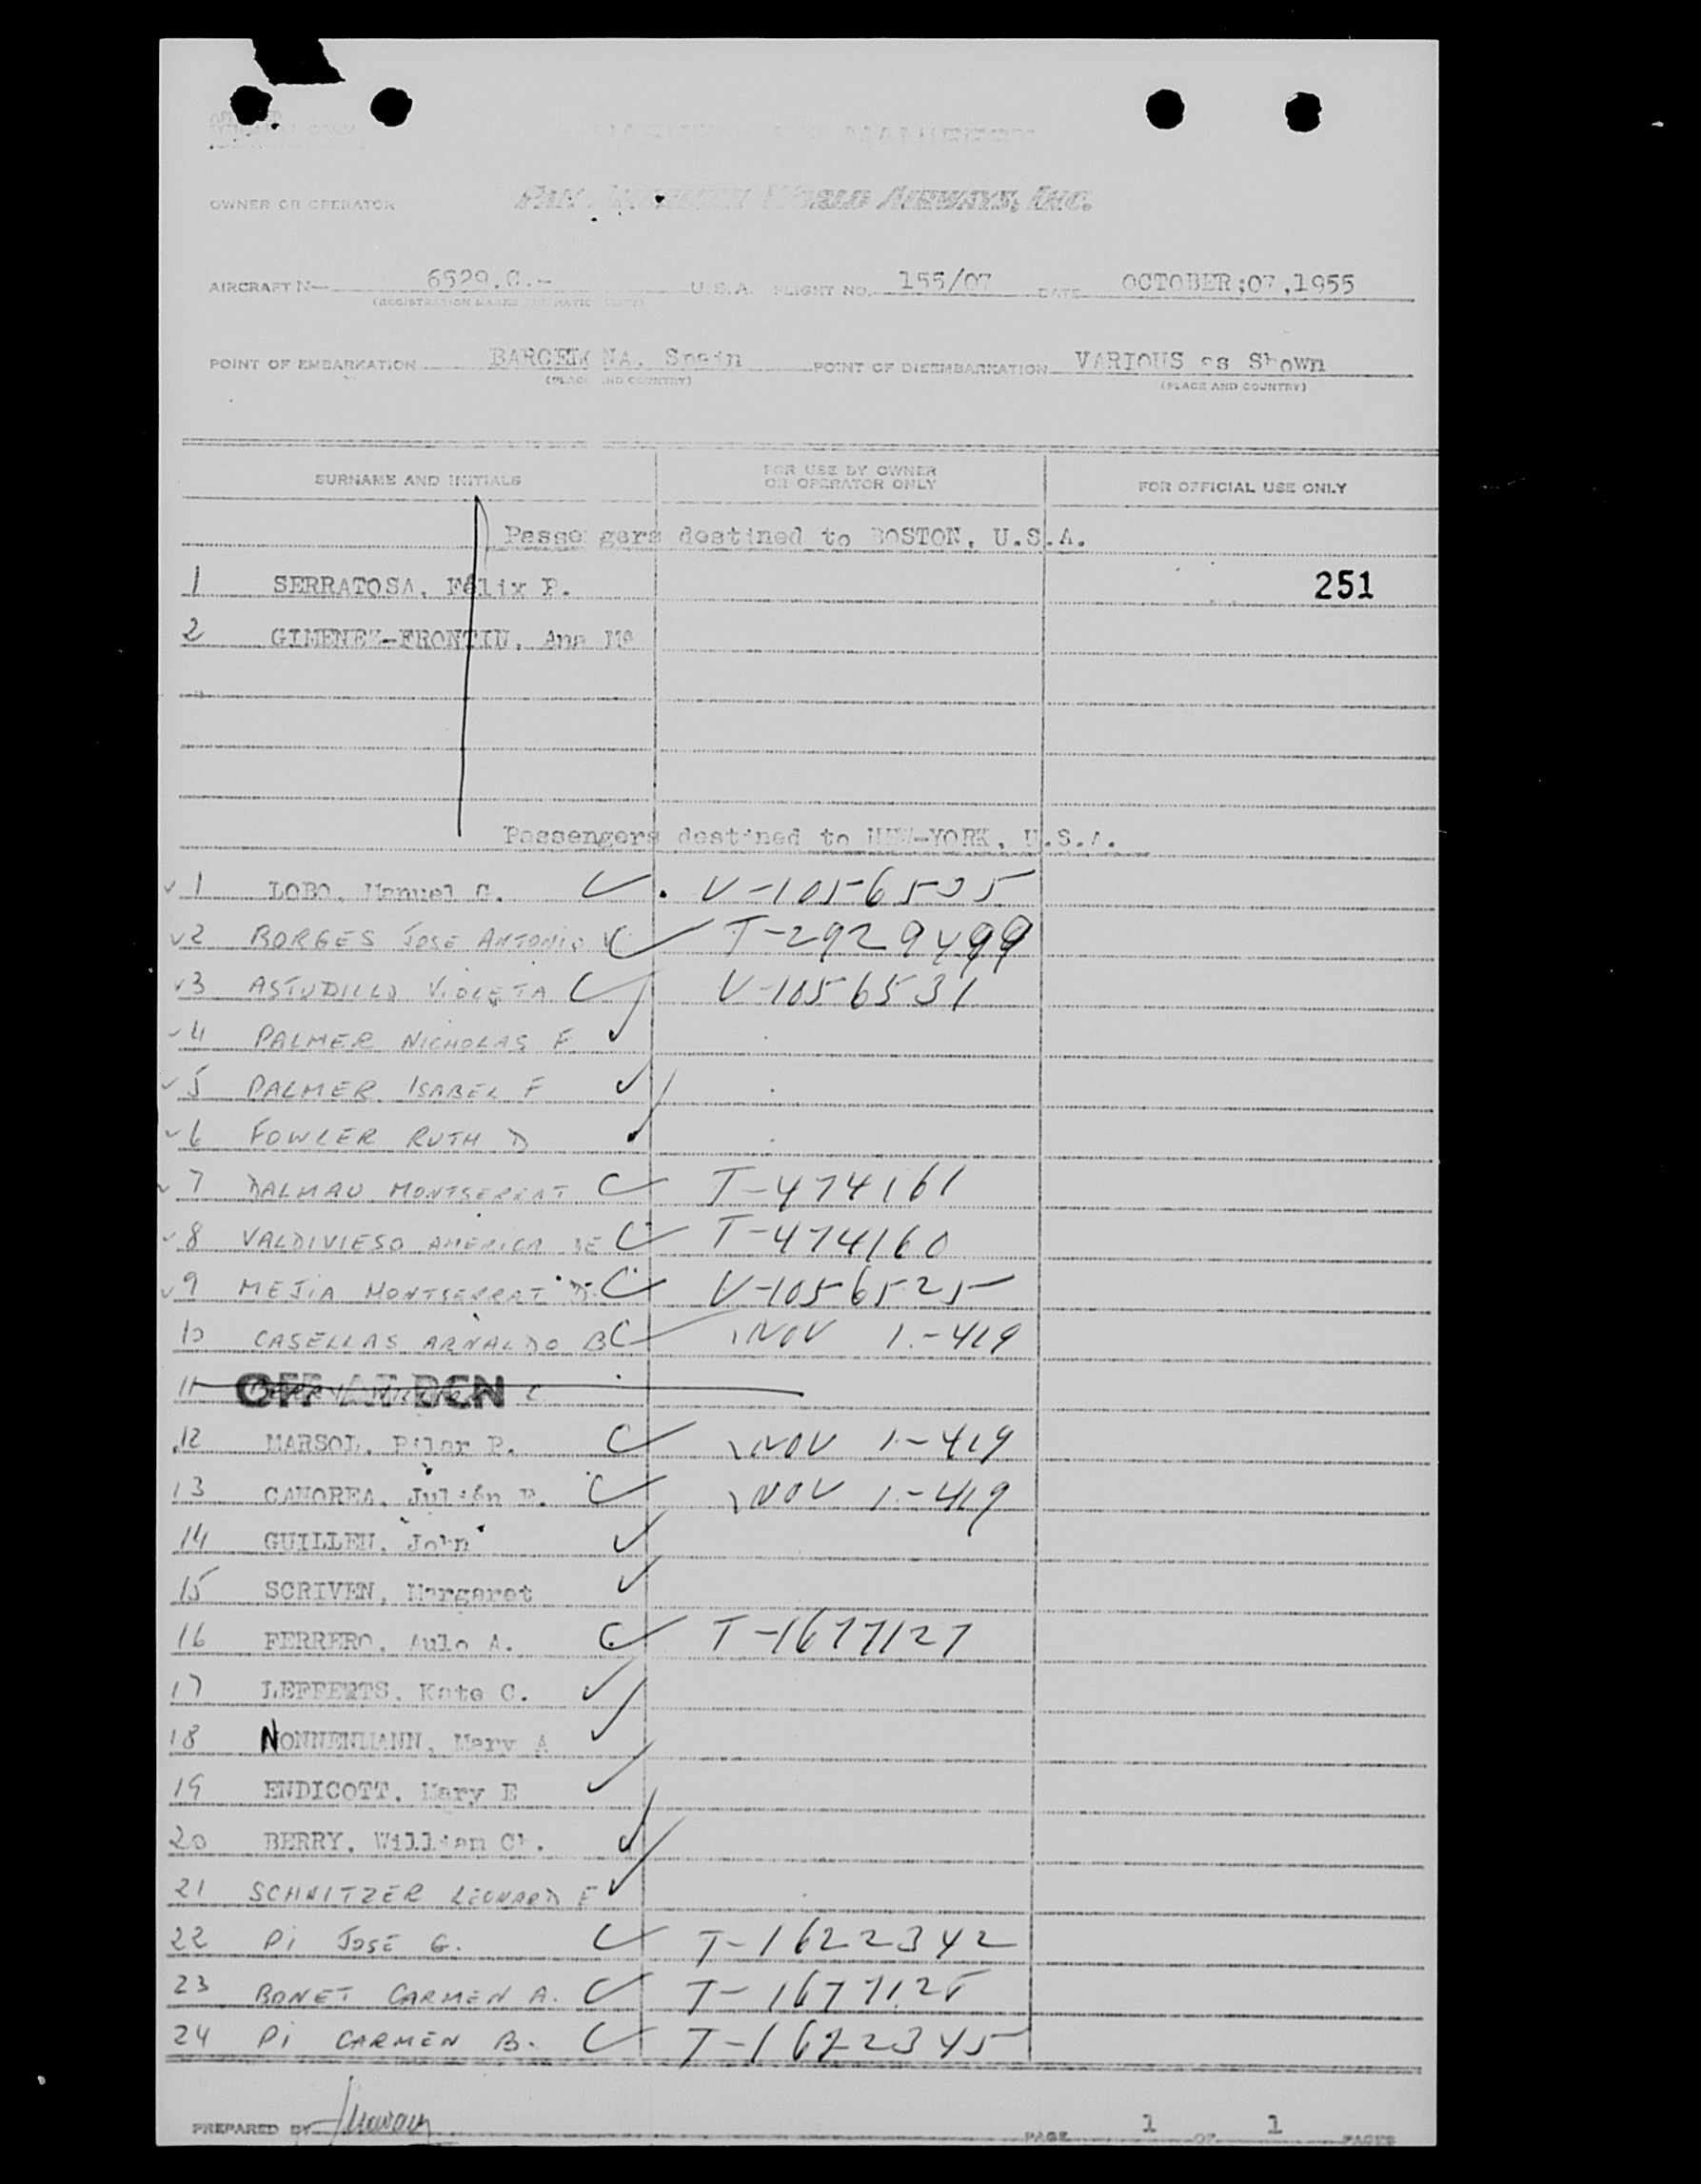 OWNER OR OPERATOR PAN AMERICAN WORLD AIRWAYS, INC.
AIRCRAFT N— 6529.C.- U.S.A. FLIGHT NO. 155/07 DATE OCTOBER;07,1955
(REGISTRATION MARKS AND NATIONALITY)
POINT OF EMBARKATION BARCELONA, Spain POINT OF DISEMBARKATION VARIOUS as Shown
(PLACE AND COUNTRY) (PLACE AND COUNTRY)
SURNAME AND INITIALS FOR USE BY OWNER OR OPERATOR ONLY FOR OFFICIAL USE ONLY
Passengers destined to BOSTON, U.S.A.
1 SERRATOSA, Félix P. 251
2 GIMENEZ-FRONTIN, Ana Mª
Passengers destined to NEW-YORK, U.S.A.
✓ 1 LOBO, Manuel G. C V-1056535
✓ 2 BORGES JOSE ANTONIO V C T-2929499
✓ 3 ASTUDILLO VIOLETA C V-1056531
✓ 4 PALMER NICHOLAS F ✓
✓ 5 PALMER ISABEL F ✓
✓ 6 FOWLER RUTH D ✓
✓ 7 DALMAU MONTSERRAT C T-474161
✓ 8 VALDIVIESO AMERICA DE C T-474160
✓ 9 MEJIA MONTSERRAT D. C V-1056525
10 CASELLAS ARNALDO B C NOV 1.-419
11 OFF AT BCN
12 MARSOL, Pilar P. C NOV 1-419
13 CAMOREA, Julián P. C NOV 1-419
14 GUILLEN, John ✓
15 SCRIVEN, Margaret ✓
16 FERRERO, Aulo A. C T-1677127
17 LEFFERTS, Kate C. ✓
18 NONNENMANN, Mary A ✓
19 ENDICOTT, Mary E ✓
20 BERRY, William Ch. ✓
21 SCHNITZER LEONARD F ✓
22 Pi JOSE G. C T-1622342
23 BONET CARMEN A. C T-1677126
24 Pi CARMEN B. C T-1622345
PREPARED BY PAGE 1 OF 1 PAGES